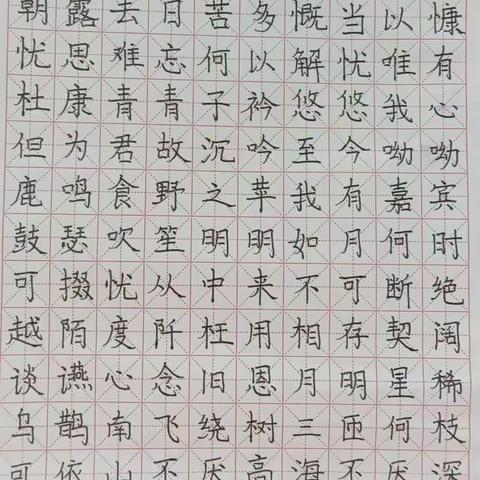 朝露去日苦多慨当以慷
忧思难忘何以解忧唯有
杜康青青子衿悠悠我心
但为君故沉吟至今呦呦
鹿鸣食野之苹我有嘉宾
鼓瑟吹笙明明如月何时
可掇忧从中来不可断绝
越陌度阡枉用相存契阔
谈讌心念旧恩月明星稀
乌鹊南飞绕树三匝何枝
可依山不厌高海不厌深